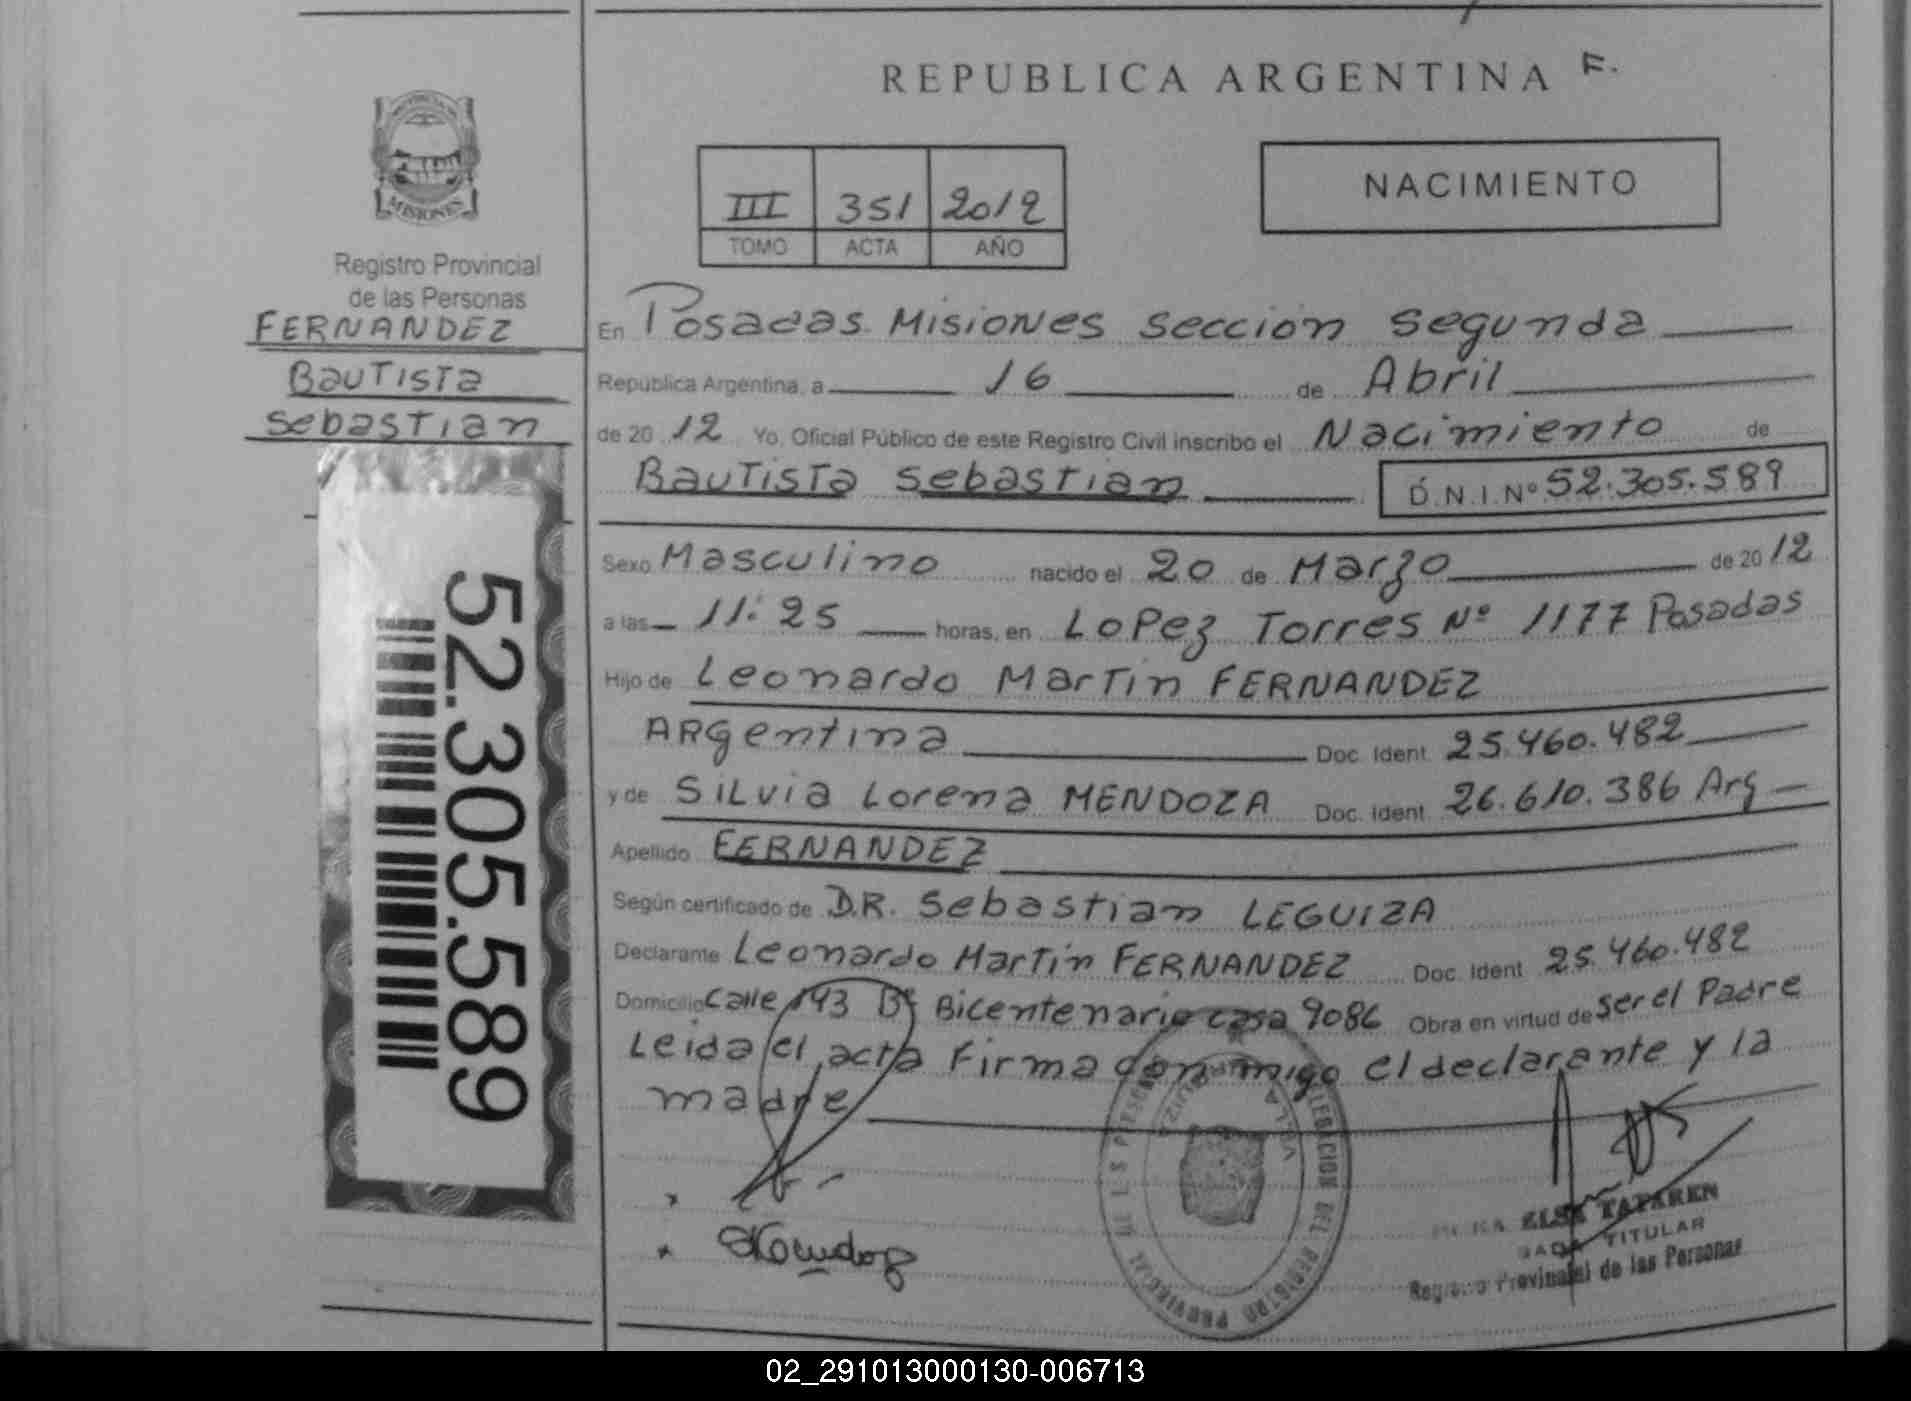 REPUBLICA ARGENTINA F.
PROVINCIA DE
MISIONES
Registro Provincial
de las Personas
FERNANDEZ
Bautista
Sebastian
52.305.589
III 351 2012
TOMO ACTA AÑO
NACIMIENTO
En Posadas Misiones seccion segunda
República Argentina, a 16 de Abril
de 2012 Yo, Oficial Público de este Registro Civil inscribo el Nacimiento de
Bautista Sebastian D.N.I.Nº 52.305.589
Sexo Masculino nacido el 20 de Marzo de 2012
a las 11:25 horas, en Lopez Torres Nº 1177 Posadas
Hijo de Leonardo Martin FERNANDEZ
Argentina Doc. Ident. 25.460.482
y de Silvia Lorena MENDOZA Doc. Ident. 26.610.386 Arg
Apellido FERNANDEZ
Según certificado de D.R. Sebastian LEGUIZA
Declarante Leonardo Martin FERNANDEZ Doc. Ident 25.460.482
Domicilio Calle 193 Bº Bicentenario casa 9086 Obra en virtud de ser el Padre
Leida el acta Firma con migo el declarante y la
madre
DELEGACION DEL REGISTRO PROVINCIAL DE LAS PERSONAS
ELSA TATAREN
TITULAR
Registro Provincial de las Personas
02_291013000130-006713